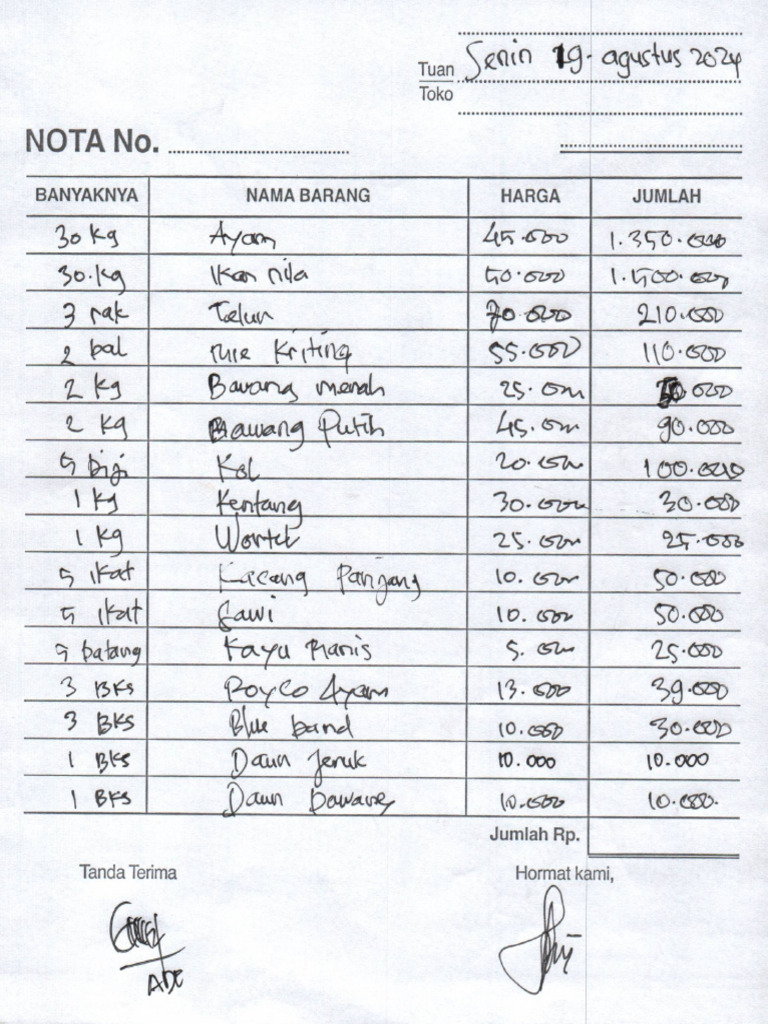 Senin 19. agustus 2024
Tuan
Toko
NOTA No.
BANYAKNYA NAMA BARANG HARGA JUMLAH
30 kg Ayam 45.000 1.350.000
30.kg Ikan nila 50.000 1.500.000
3 rak Telur 70.000 210.000
2 bal mie Kriting 55.000 110.000
2 kg Bawang merah 25.000 50.000
2 kg Bawang Putih 45.000 90.000
5 biji Kol 20.000 100.000
1 kg Kentang 30.000 30.000
1 kg Wortel 25.000 25.000
5 ikat Kacang Panjang 10.000 50.000
5 ikat Sawi 10.000 50.000
5 batang Kayu Manis 5.000 25.000
3 BKS Royco Ayam 13.000 39.000
3 BKS Blue band 10.000 30.000
1 BKS Daun Jeruk 10.000 10.000
1 BKS Daun bawang 10.000 10.000.
Jumlah Rp.
Tanda Terima Hormat kami,